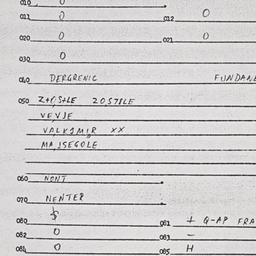 010 0
011 0 012 0
020 0 021 0
030 0
040 DERGRENIC FUNDAME
050 20STBLE
VEVJE
VALKOMIR XX
MAJSEGOLE
060 NONT
070 NENTER
080 081 + Q-AP FRA
082 0 083 -
084 0 085 H